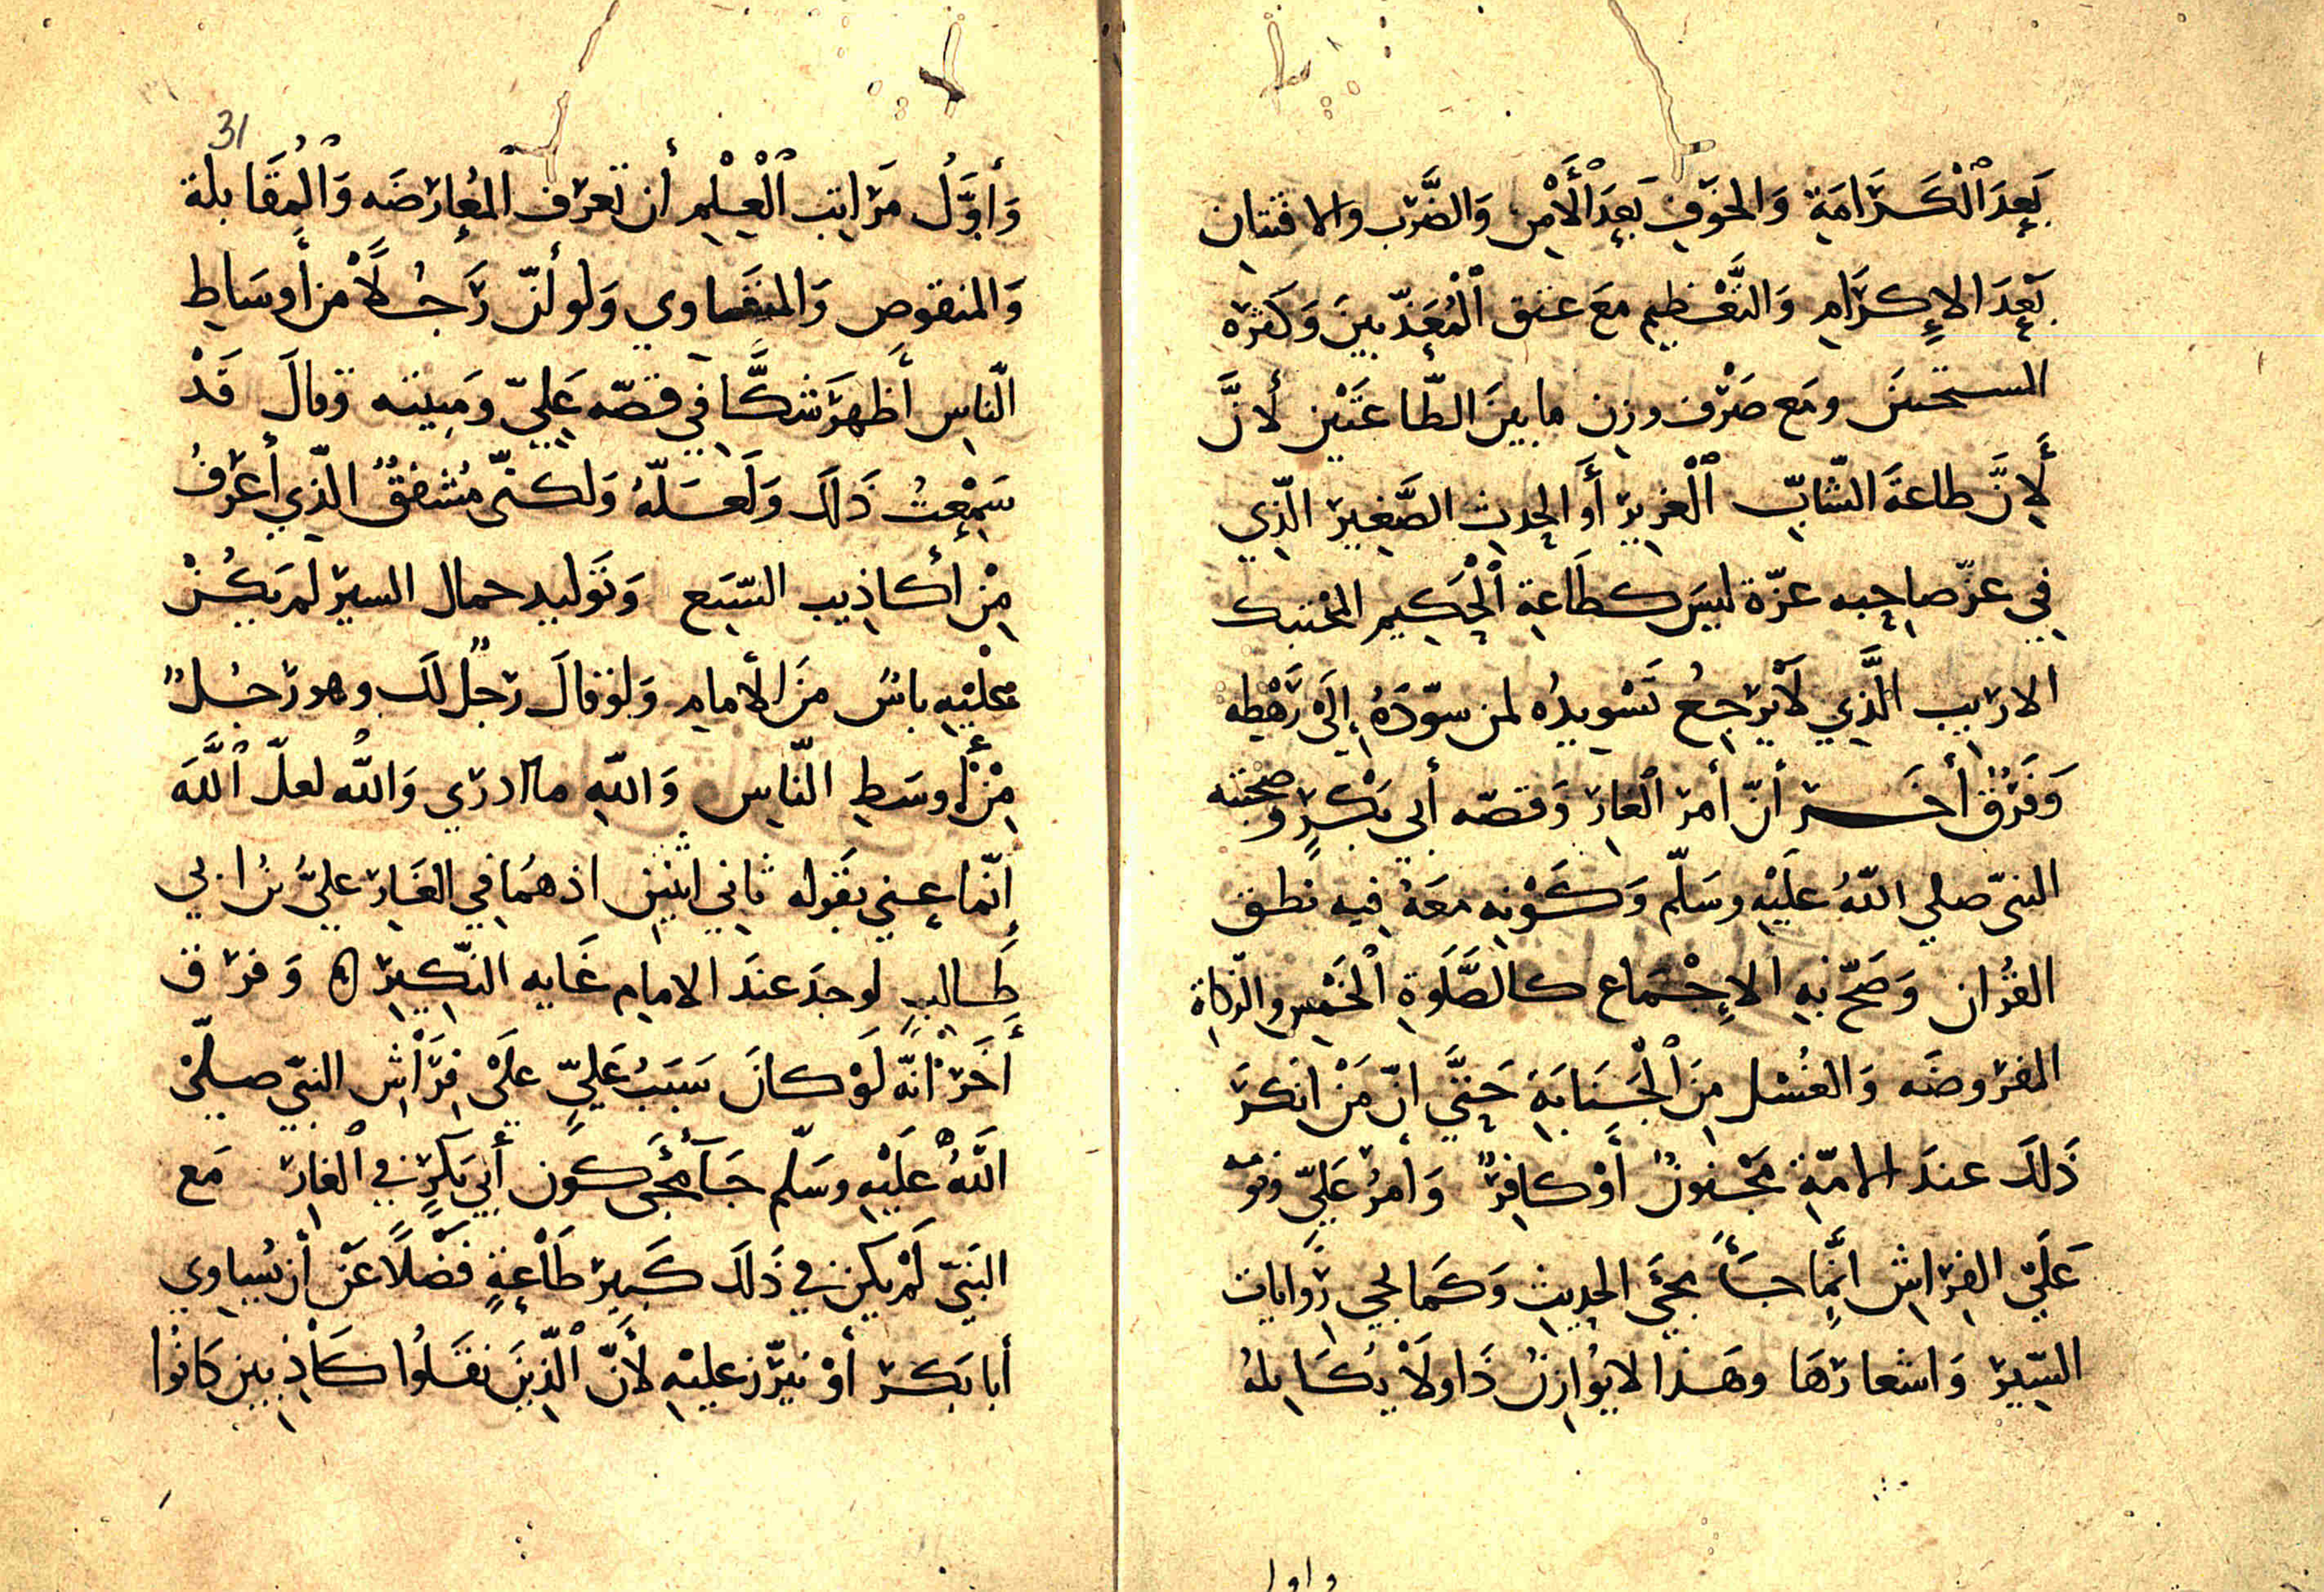 بَعدَ ٱلْكَرَامَةِ وَالخوَفِ بَعدَ ٱلْأَمْنِ وَالضَّرْب والافتتان
بَعدَ الإِكرَامِ وَالتَّعْظيم مَعَ عتق ٱلْمُعَذّبينَ وَكثره
المستحقين ومَع صَرْف وزن ما بينَ الطّاعَتَيْن لأنَّ
لأَِنَّ طاعةَ الشّابّ ٱلْغرير أَو الحدث الصَّغير الّذي
في عزّ صاحِبه عزّة ليسَ كطَاعةِ ٱلْحَكِيم المحْتنك
الاريب الَّذي لَا يَرجِعُ تَسْويدُه لمن سوّدَهُ إلَىٰ رَهْطِه
وَفَرْقٌ أخَر أنّ أمر ٱلغار وَقصّه أبي بَكْرٍ وصحبته
النبيّ صلى اللّهُ عليْهِ وسَلّم وَكَوْنِه معَهُ فيه نطق
القُران وَصَحّ بهِ الإِجْماع كالصَّلَوةِ ٱلْخَمْسِ والزكاة
المفروضَه وَالغُسْلِ مِنَ ٱلْجَنَابَةِ حَتَّي انّ مَنْ انكرَ
ذَلكَ عندَ الامّةِ مَجْنونٌ أَوْ كافرٌ وَأمرُ عَليّ ونومه
عَلَيّ الفِرَاشِ انَّما جَاءَ مجَيَ الحديثِ وَكَما يجي رَوَايات
السِّيَر وَاشعارَهَا وهَذا لا يُوازِنُ ذَا ولَاْ يكَايلهُ
واول
31
وَأوَّلُ مَرَاتِب ٱلْعِلْمِ أن تَعرف ٱلمُعارضَه وَٱلْمُقَابلة
وَالمنقوص وَالمتَساوي وَلو أنّ رَجُلًا مْن أَوسَاطِ
النّاسِ أَظهرَ شكًّا في قصّه عَليّ ومَبيته وقالَ قَدْ
سَمِعتُ ذَلكَ وَلَعَلّهُ وَلكنّى مُشْفقٌ الّذي أعرِفُ
مِنْ أكاذِيب الشيَع وَتَوليد حمال السير لم يَكُنْ
عَلَيْهِ باسٌ مَن الأمام وَلوْ قالَ رَجلٌ لكَ وهو رَجُلٌ
مِنْ أَوسَطِ النّاسِ وَاللّهِ ما ادرِي وَاللّه لعلّ ٱللّهَ
إنّما عني بقَوله ثاني اثنين اذ همُا في الغَار عليَّ بْنُ ابي
طَالبٍ لوجدَ عندَ الامامِ غَايه النّكيرِ ٥ وَفرق
أَخَرْ انَّه لَوْ كانَ سَبَبُ عَليّ علَىٰ فِرَاْشِ النبيّ صلّىٰ
ٱللَّهُ عَلَيْهِ وسَلّم جَاَ مجَيَ كَون أبي بَكرٍ في ٱلغار مَع
النَبيّ لَمْ يكن في ذَلكَ كَبير طَاْعةٍ فَضْلًا عَنْ أن يُساوي
أبا بَكر أوْ يبرّز عليْهِ لأَنّ ٱلّذِينَ نقَلُوا كَاْذبين كانُوا